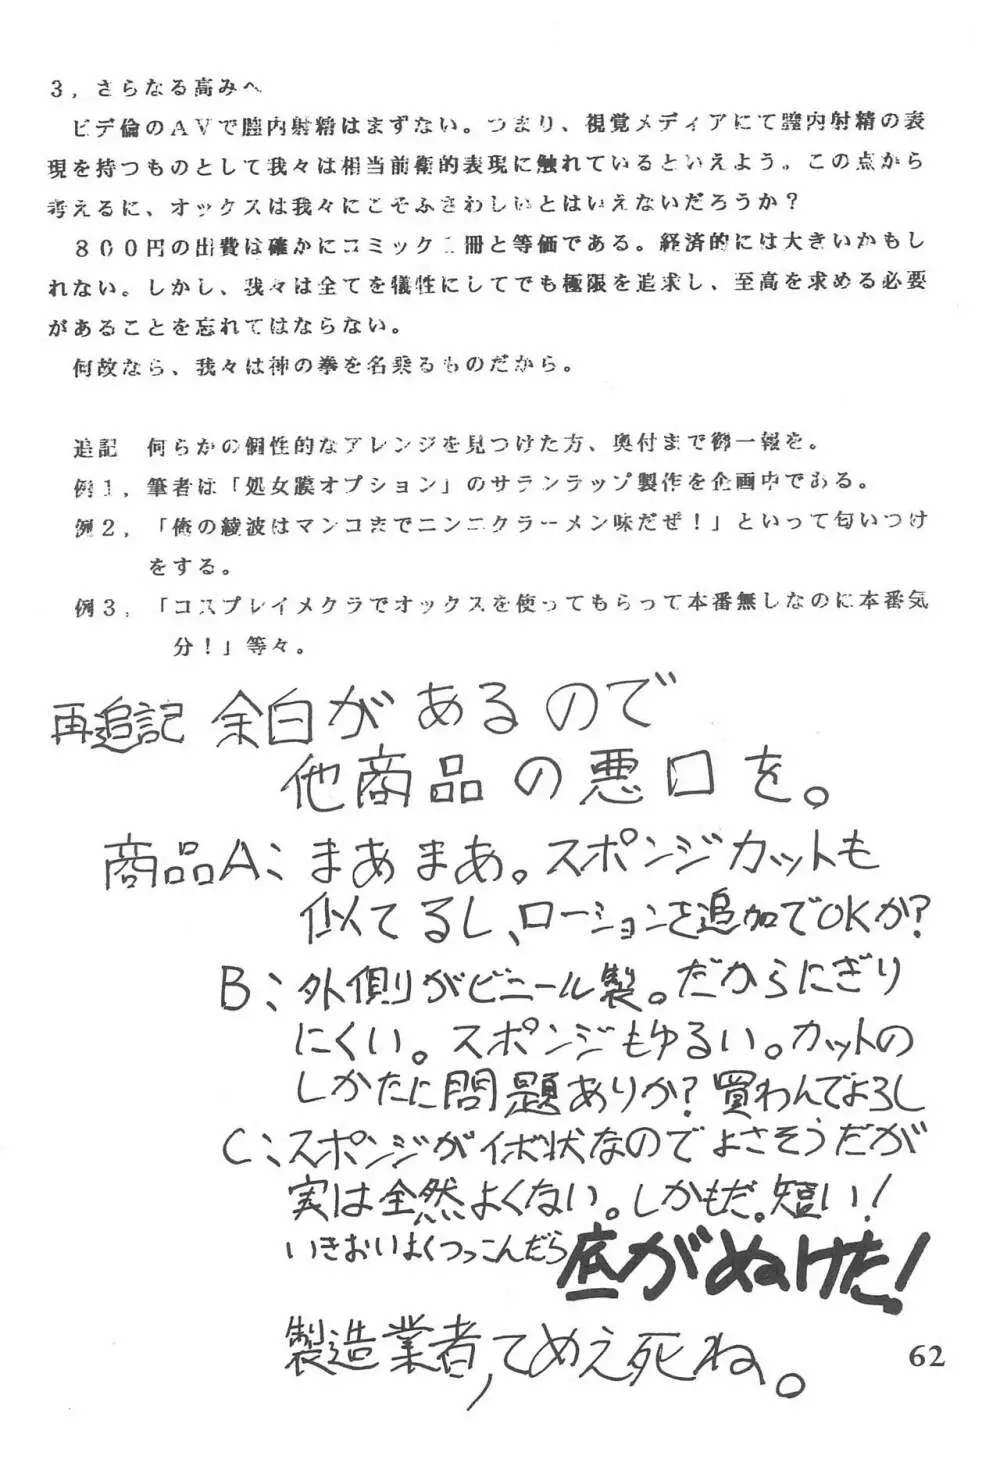 3，さらなる高みへ
ビデ倫のＡＶで膣内射精はまずない。つまり、視覚メディアにて膣内射精の表
現を持つものとして我々は相当前衛的表現に触れているといえよう。この点から
考えるに、オックスは我々にこそふさわしいとはいえないだろうか？
８００円の出費は確かにコミック二冊と等価である。経済的には大きいかもし
れない。しかし、我々は全てを犠牲にしてでも極限を追求し、至高を求める必要
があることを忘れてはならない。
何故なら、我々は神の拳を名乗るものだから。
追記　何らかの個性的なアレンジを見つけた方、奥付まで御一報を。
例１，筆者は「処女膜オプション」のサランラップ製作を企画中である。
例３，「コスプレイメクラでオックスを使ってもらって本番無しなのに本番気
分！」等々。
再追記 余白があるので
他商品の悪口を。
商品A：まあまあ。スポンジカットも
似てるし、ローションを追加でOKか？
B：外側がビニール製。だからにぎり
にくい。スポンジもゆるい。カットの
しかたに問題ありか？買わんでよろし
C：スポンジがイボ状なのでよさそうだが
実は全然よくない。しかもだ。短い！
いきおいよくつっこんだら底がぬけた！
製造業者，てめえ死ね。
62